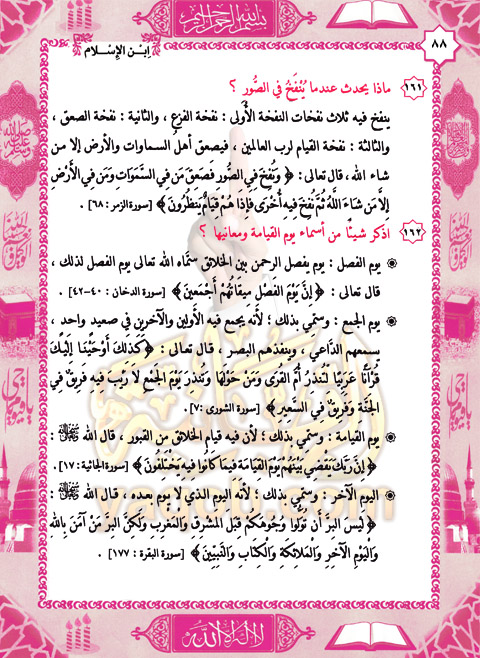 بسم الله الرحمن الرحيم
٨٨
ابن الإسلام
١٦١ ماذا يحدث عندما يُنْفَخُ في الصُّور ؟
ينفخ فيه ثلاث نفخات النفخة الأُولى : نفخة الفزع ، والثانية : نفخة الصعق ،
والثالثة : نفخة القيام لرب العالمين ، فيصعق أهلُ السماوات والأرض إلا من
شاء الله ، قال تعالى : ﴿ وَنُفِخَ فِي الصُّورِ فَصَعِقَ مَن فِي السَّمَوَاتِ وَمَن فِي الْأَرْضِ
إِلَّا مَن شَاءَ اللَّهُ ثُمَّ نُفِخَ فِيهِ أُخْرَى فَإِذَا هُمْ قِيَامٌ يَنظُرُونَ ﴾ [سورة الزمر : ٦٨] .
١٦٢ اذكر شيئًا من أسماء يوم القيامة ومعانيها ؟
يوم الفصل : يوم يفصل الرحمن بين الخلائق سمَّاه الله تعالى يوم الفصل لذلك ،
قال تعالى : ﴿ إِنَّ يَوْمَ الْفَصْلِ مِيقَاتُهُمْ أَجْمَعِينَ ﴾ [سورة الدخان : ٤٠-٤٢]
يوم الجمع : وسمِّي بذلك ؛ لأنَّه يجمع فيه الأولين والآخرين في صعيد واحد ،
يسمعهم الدَّاعي ، وينفذهم البصر ، قال تعالى : ﴿ كَذَلِكَ أَوْحَيْنَا إِلَيْكَ
قُرْآنًا عَرَبِيًّا لِتُنذِرَ أُمَّ الْقُرَى وَمَنْ حَوْلَهَا وَتُنذِرَ يَوْمَ الْجَمْعِ لَا رَيْبَ فِيهِ فَرِيقٌ فِي
الْجَنَّةِ وَفَرِيقٌ فِي السَّعِيرِ ﴾ [سورة الشورى :٧] .
يوم القيامة : وسمِّي بذلك ؛ لأن فيه قيام الخلائق من القبور ، قال الله ﷻ :
﴿ إِنَّ رَبَّكَ يَقْضِي بَيْنَهُمْ يَوْمَ الْقِيَامَةِ فِيمَا كَانُوا فِيهِ يَخْتَلِفُونَ ﴾ [سورة الجاثية :١٧] .
اليوم الآخر : وسمِّي بذلك ؛ لأنَّه اليوم الذي لا يوم بعده ، قال الله ﷻ :
﴿ لَيْسَ الْبِرَّ أَن تُوَلُّوا وُجُوهَكُمْ قِبَلَ الْمَشْرِقِ وَالْمَغْرِبِ وَلَكِنَّ الْبِرَّ مَنْ آمَنَ بِاللَّهِ
وَالْيَوْمِ الْآخِرِ وَالْمَلَائِكَةِ وَالْكِتَابِ وَالنَّبِيِّينَ ﴾ [سورة البقرة : ١٧٧] .
لا إله إلا الله